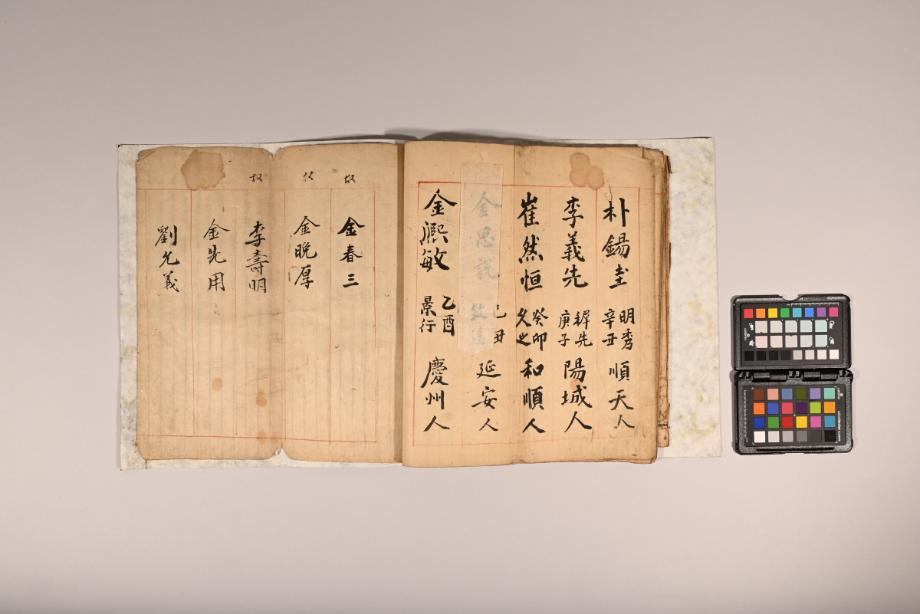 朴錫圭 明秀 辛丑 順天人
李義先 穉先 庚子 陽城人
崔然恒 癸卯 久之 和順人
金思説 己丑 延安人
金熙敏 乙酉 景行 慶州人
故 金春三
仗 金晩厚
故 李壽明
金先用
劉允義